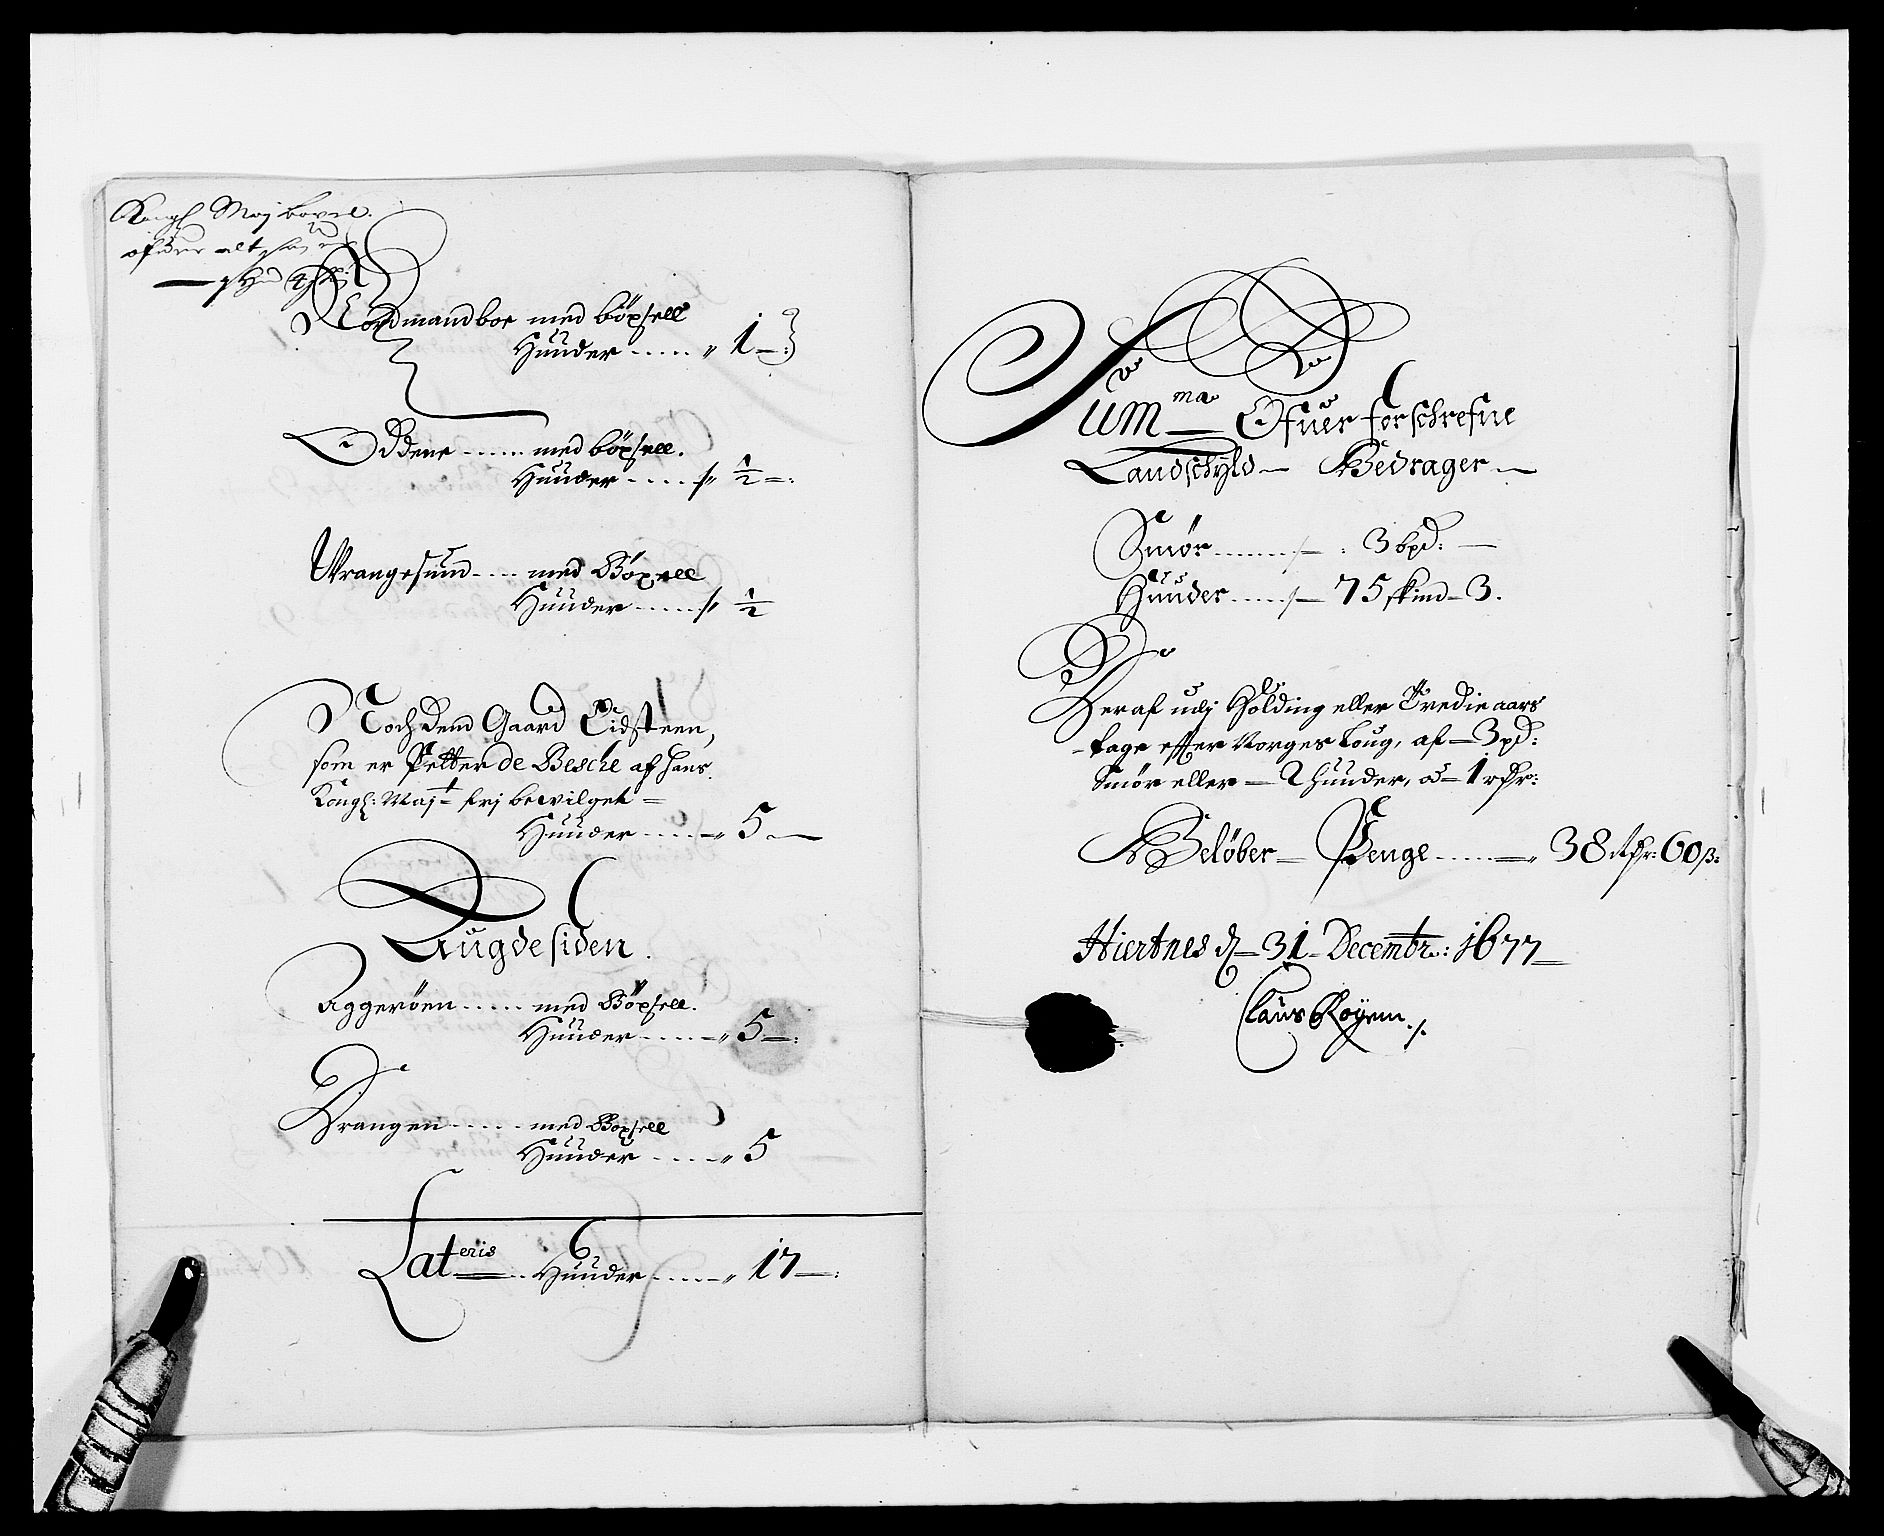 Kongl Maj
alt
Nordmandboe med böxsell
Huuder ..... " 1 —:
Oddene ...... med böxsell.
Huuder ..... ½ —:
Wrangesund .... med Böxsell
Huuder ...... ½
Noch Dend Gaard Eidsteen,
som er Petter de Besche af hans
Kongl: Maj:t frj bewilget —
Huuder ..... " 5 —
Laugdesiden.
Aggeröen ...... med Böxsell.
Huuder ..... " 5 —:
Wrangen ...... med Böxsell
Huuder ..... " 5
Lateris — .. Huuder ..... " 17 —:
Summa — Ofuer forschrefne
Landschyld — Bedrager —
Smör ........ — : 3 bpd: —
Huuder ...... — 75 skind — 3.
Deraf udj Holding eller Tredie aars
tage effter Norges Loug, af — 3 pd:
Smör eller — 2 huuder, — 1 rdr:
Belöber — Penge ..... — 38 Rdr: 60 ß:
Hiertnes d — 31 — Decembr: 1677 —
Claus Röyem ./.